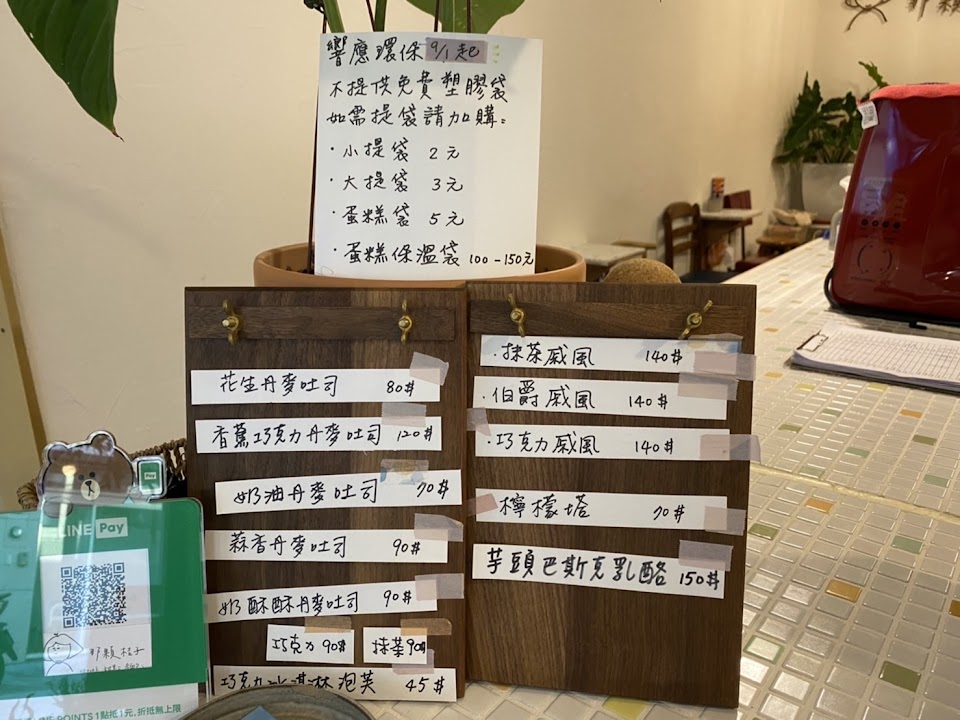 響應環保 9/1起
不提供免費塑膠袋
如需提袋請加購:
·小提袋 2元
·大提袋 3元
·蛋糕袋 5元
·蛋糕保溫袋 100-150元
花生丹麥吐司 80#
香蕉巧克力丹麥吐司 120#
奶油丹麥吐司 70#
蒜香丹麥吐司 90#
奶酥酥丹麥吐司 90#
巧克力 90# 抹茶 90#
巧克力冰淇淋泡芙 45#
·抹茶戚風 140#
·伯爵戚風 140#
·巧克力戚風 140#
檸檬塔 70#
芋頭巴斯克乳酪 150#
LINE Pay
Pay
那顆柚子
POINTS 1點抵1元, 折抵無上限